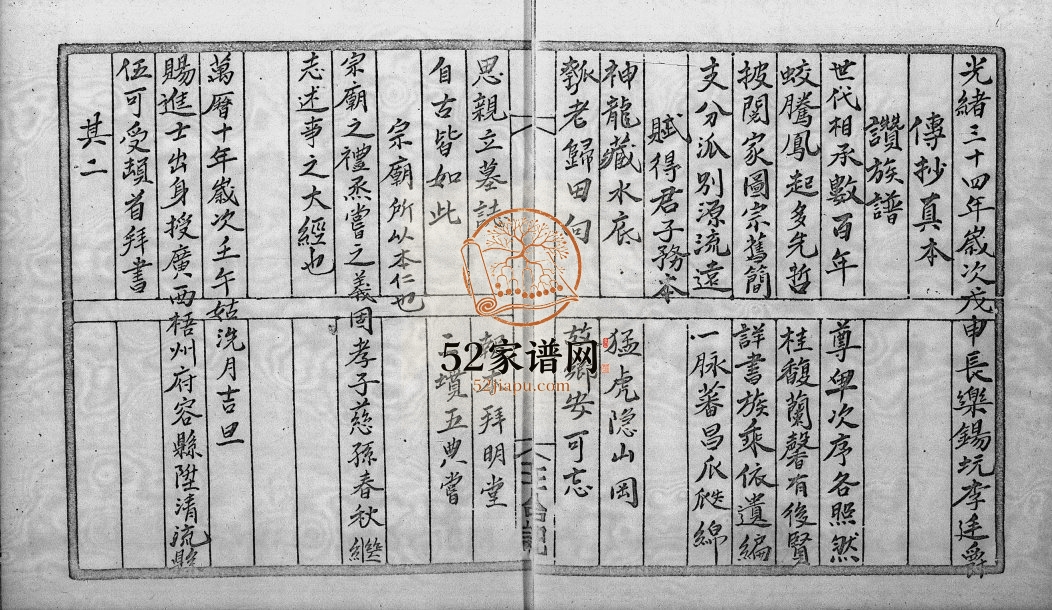 光緒三十四年歲次戊申長樂錫坑李廷爵
傳抄真本
讚族譜
世代相承數百年 尊卑次序各照然
蛟騰鳳起多先哲 桂馥蘭馨有後賢
披閱家圖宗舊簡 詳書族乘依遺編
支分派別源流遠 一脉蕃昌瓜瓞綿
賦得君子務本
神龍藏水底 猛虎隐山岡
執老歸田向 鄉安可忘
思親立墓誌 拜明堂
自古皆如此 墳五典嘗
宗廟所以本仁也
宗廟之禮烝嘗之義固孝子慈孫春秋繼
志述事之大經也
萬曆十年歲次壬午姑洗月吉旦
賜進士出身授廣西梧州府容縣陞清流縣
伍可受頓首拜書
其二
52家谱网
52jiapu.com